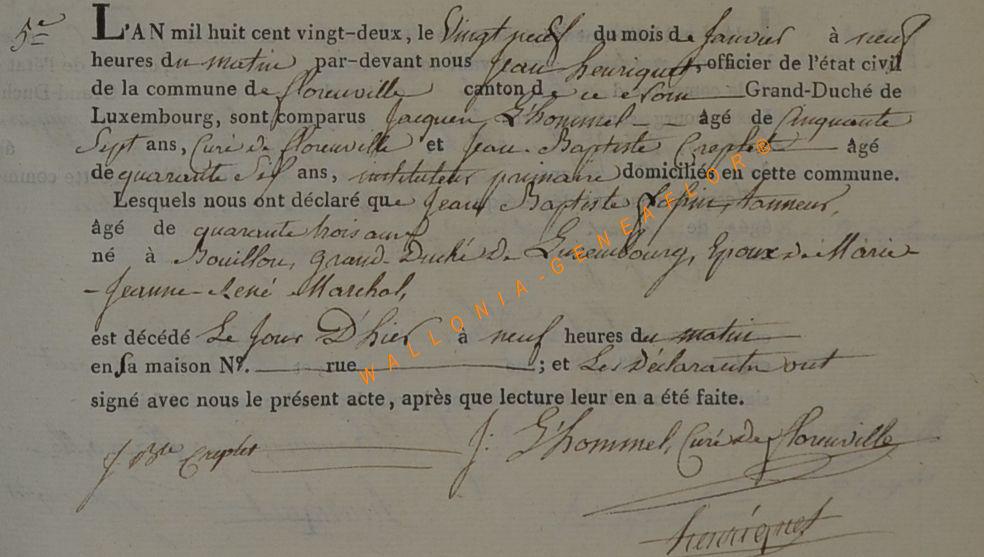 5e L'AN mil huit cent vingt-deux, le Vingt neuf du mois de Janvier à neuf
heures du matin par-devant nous Jean henriquet, officier de l'état civil
de la commune de florenville canton de ce nom Grand-Duché de
Luxembourg, sont comparus Jacques L'hommel âgé de Cinquante
Sept ans, Curé de florenville et Jean Baptiste Creplet âgé
de quarante Six ans, instituteur primaire domiciliés en cette commune.
Lesquels nous ont déclaré que Jean Baptiste tanneur,
âgé de quarante trois ans
né à Bouillon, grand Duché de Luxembourg, Epoux de Marie
Jeanne René Marchal,
est décédé Le Jour D'hier à neuf heures du matin
en sa maison N°. rue ; et Les Déclarants ont
signé avec nous le présent acte, après que lecture leur en a été faite.
J. Bte Creplet J: L'hommel, Curé de florenville
henriquet
WALLONIA-GENEALOR®